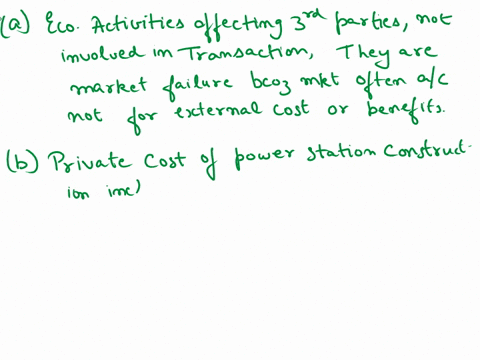 (a) Eco. Activities affecting 3rd parties, not
involved in Transaction, They are
market failure bcoz mkt often a/c
not for external cost or benefits.
(b) Private Cost of power station Construct-
ion inc)